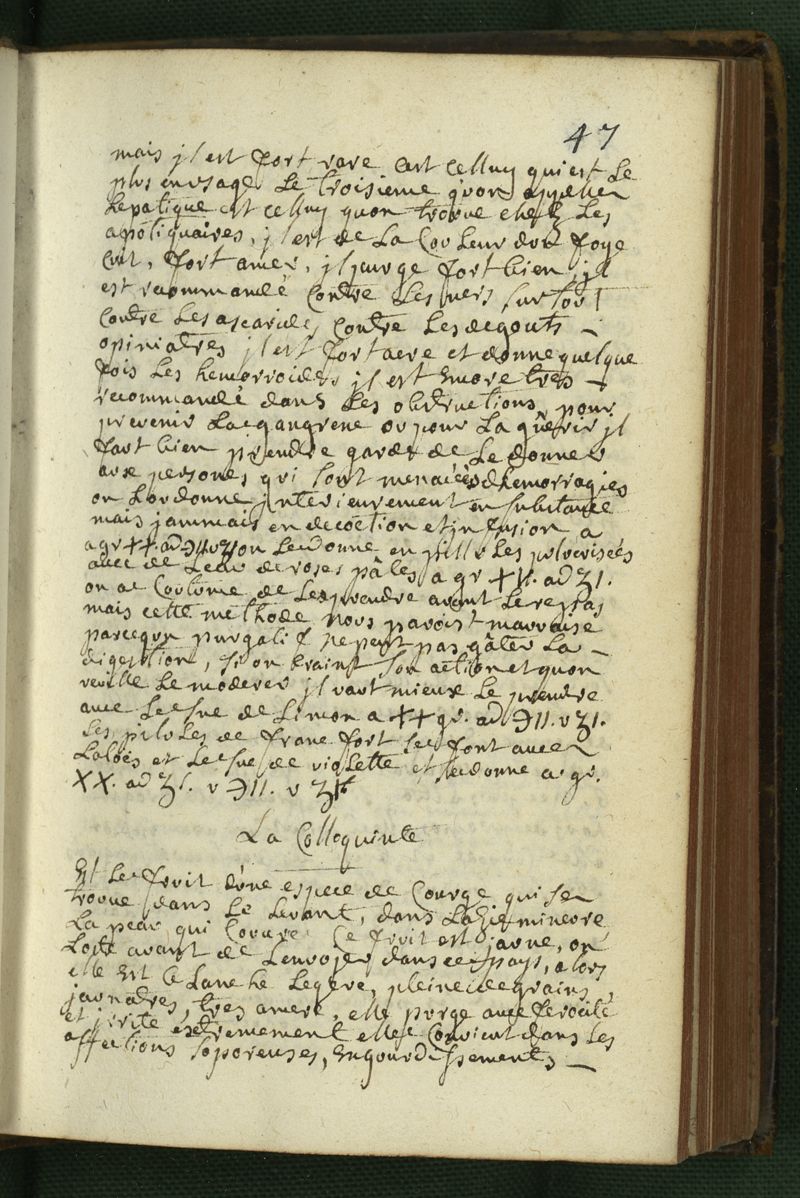 47
mais jl est fort rare cest celluy qui est le
plus en usage le troisieme quon appelle
hepatique est celluy quon trouve chez les
apotiquaires, jl est de la couleur du foye
cuit, fort amer, jl purge fort bien, jl
est recommandé contre les vers surtout
contre les ascarides contre les degouts —
opiniatres jl est fort acre et donne quelque
fois les hemorroides jl est encore tres —
recommandé dans les obstructions, pour
prevenir la gangrene ou pour la guerir jl
faut bien prendre garde de le donner
aux persones qui sont menacées dhemorragies
on lordonne jnterieurement en substance
mais jammais en decoction et jnfusion a
agr XX. ad ℈II. v ʒI on le donne en pillules pulverisées
avec de leau de roses pâles a gr XII. ad ʒI.
on a coutume de les prendre avant le repas
mais cette methode nous paroist mauvaise
parcequn purgatif ne peut pas gâter la —
digestion, si on craint son action et quon
veuille le moderer jl vaut mieux le prendre
avec le suc de limon a XX gr. ad ℈II. v ʒI.
les pilules de francfort se font avec
laloës et le suc de violette et se donne a. gr.
XX. ad ʒI. v ℈II. v ʒI
La Colloquinte
Est le fruit dune espece de Courge qui se
trouve dans le Levant, dans lasie mineure
la peau qui couvre ce fruit est jaune, on
loste avant de lenvoyer dans ce pays, alors
elle est blanche legere, pleine de grains
jaunatres, tres amere, elle purge avec ferocité
et jrrite extremement elle convient dans les
affections soporeuses, engourdissements, —